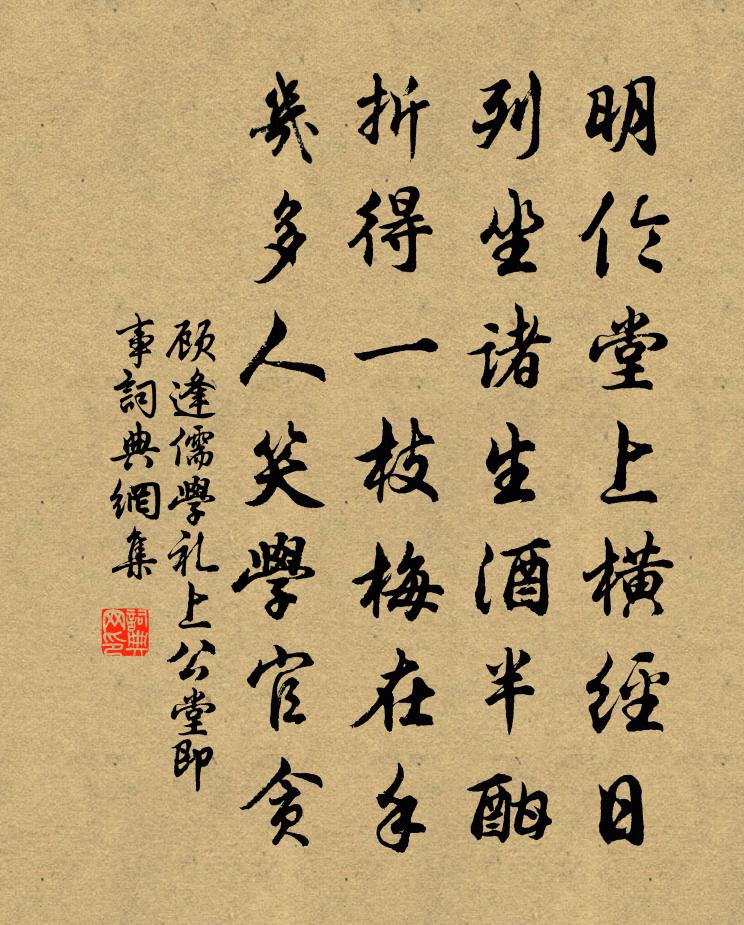 明伦堂上横經日
列坐諸生酒半酣
折得一枝梅在手
幾多人笑學官貪
顾逢儒學礼上公堂即
事詞典網集
詞典
网印